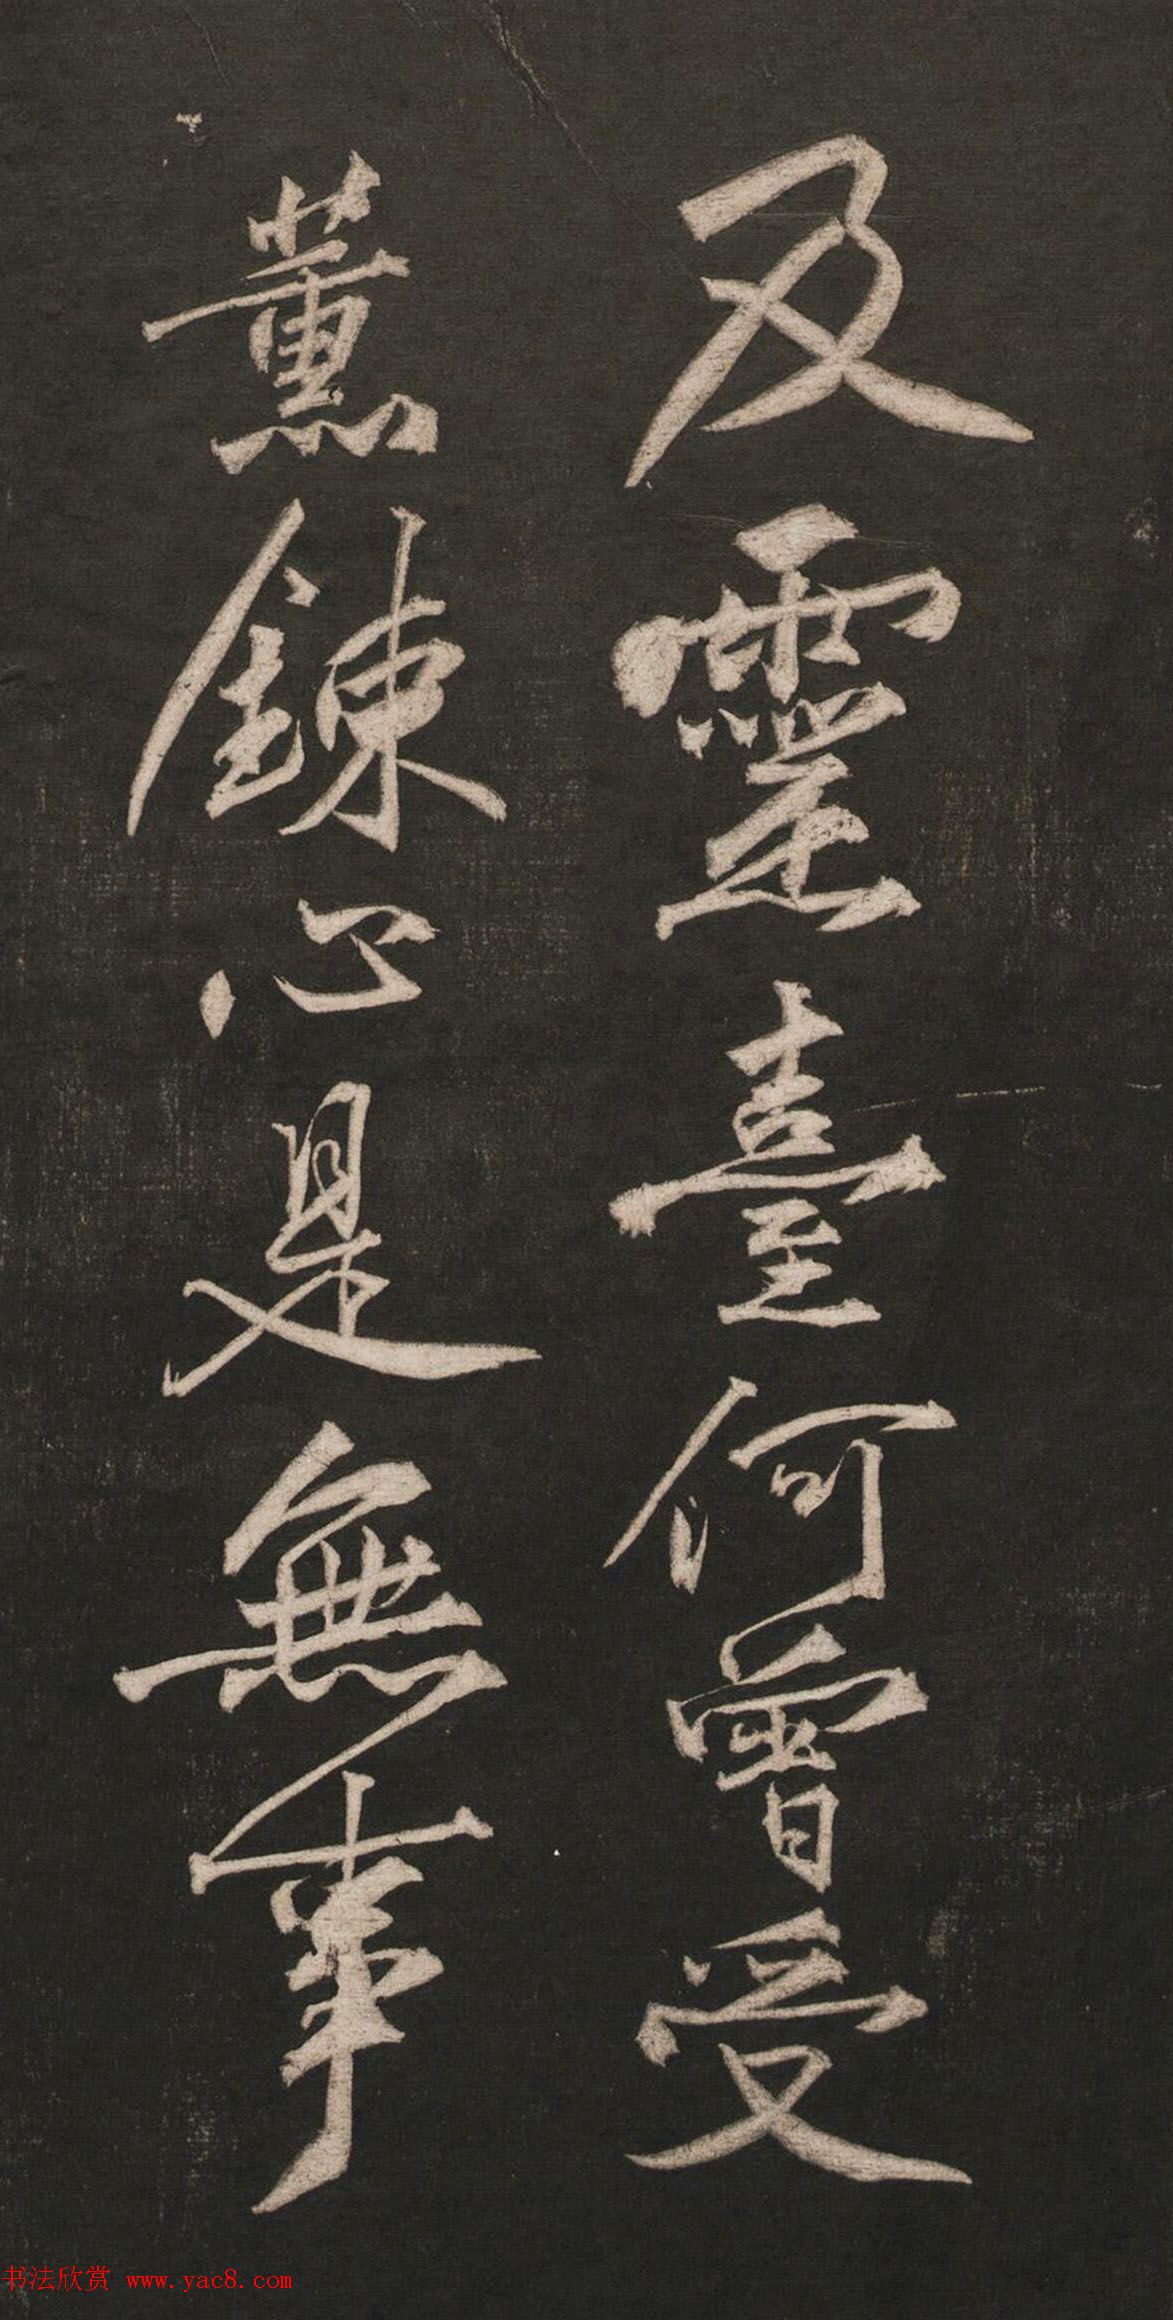 及靈臺何曾受
薫鍊心是無事
书法欣赏 www.yac8.com